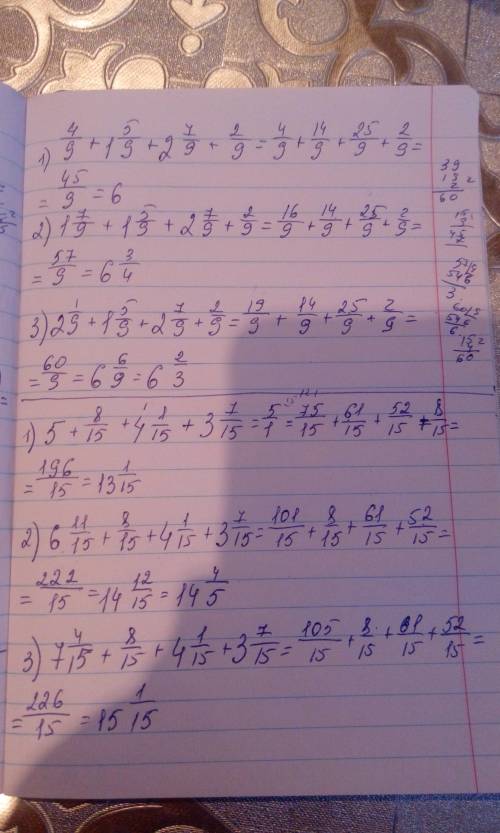 1) 4/9 + 1 5/9 + 2 7/9 + 2/9 = 4/9 + 14/9 + 25/9 + 2/9 =
= 45/9 = 6
2) 1 7/9 + 1 5/9 + 2 7/9 + 2/9 = 16/9 + 14/9 + 25/9 + 2/9 =
= 57/9 = 6 3/4
3) 2 1/9 + 1 5/9 + 2 7/9 + 2/9 = 19/9 + 14/9 + 25/9 + 2/9 =
= 60/9 = 6 6/9 = 6 2/3
1) 5 + 8/15 + 4 1/15 + 3 7/15 = 5/1 = 75/15 + 61/15 + 52/15 + 8/15 =
= 196/15 = 13 1/15
2) 6 11/15 + 8/15 + 4 1/15 + 3 7/15 = 101/15 + 8/15 + 61/15 + 52/15 =
= 222/15 = 14 12/15 = 14 4/5
3) 7 4/15 + 8/15 + 4 1/15 + 3 7/15 = 105/15 + 8/15 + 61/15 + 52/15 =
= 226/15 = 15 1/15
39
60
60